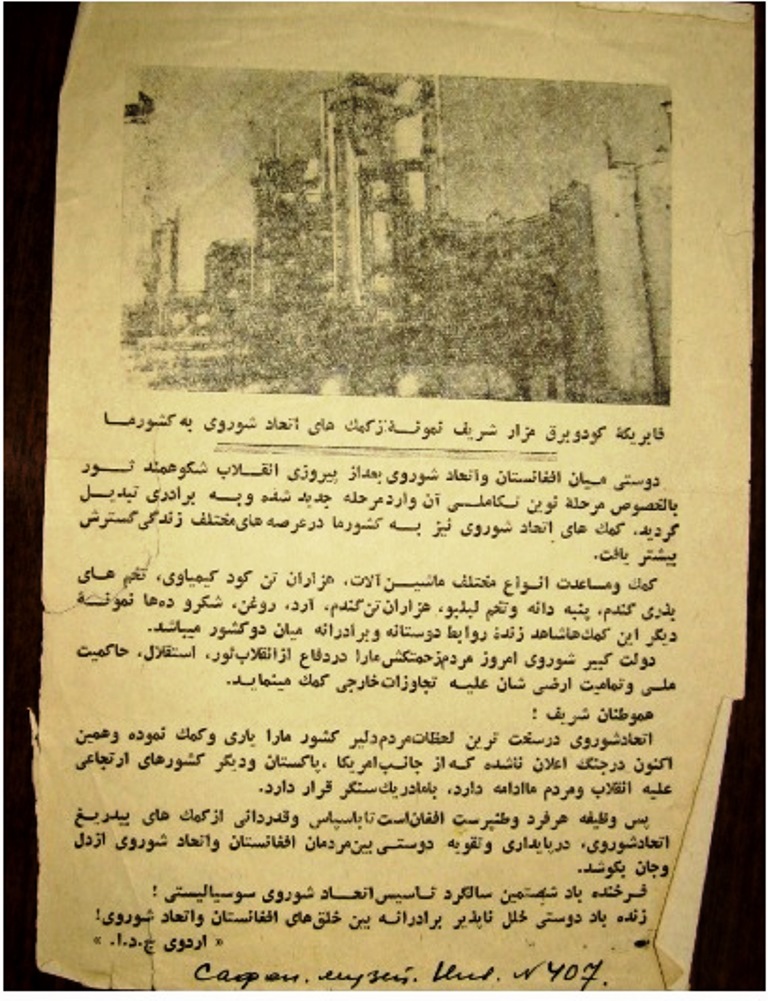 فابریکهٔ کودوبرق مزار شریف نمونـــهٔ ازکمك های اتحاد شوروی به کشورمـا
دوستی مـیان افغانستان واتحاد شوروی بعداز پیروزی انقـــلاب شکوهمند ثـــور
بالخصوص مرحلهٔ نوین تـکاملـــی آن واردمرحله جدید شده وبـــه برادری تبدیـــل
گردید. کمك های اتحاد شوروی نیز بـــه کشورما درعرصه های مختلف زندگی گسترش
بیشتر یافت.
کمك ومساعدت انـــواع مختلف ماشیـــن آلات، هزاران تن کود کیمیاوی، تخم هـــای
بذری گندم، پنبه دانه وتخم لبلبو، هزاران تن گندم، آرد، روغن، شکرو ده‌ها نمونـــهٔ
دیگر این کمك‌هاشاهد زندهٔ روابط دوستانه وبرادرانه میان دوکشور میباشد.
دولت کبیر شوروی امروز مردم‌زحمتکش مارا دردفاع ازانقلاب ثور، استقلال، حاکمیت
ملـــی وتمامیت ارضی شان علیـــه تجاوزات خارجی کمك مینمایـد.
هموطنان شریف !
اتحادشوروی درسخت ترین لحظات مردم دلیر کشور مارا یاری وکمك نموده وهمین
اکنون درجنگ اعلان ناشده که از جانب امریکا ،پاکستان ودیگر کشورهای ارتجاعی
علیه انقلاب ومردم ماادامه دارد، بامادریك سنگر قرار دارد.
پس وظیفه هرفرد وطنپرست افغان است تاباسپاس وقدردانی ازکمك های بیدریـــغ
اتحادشوروی، درپایداری وتقویه دوستـــی بین مردمان افغانستان واتحاد شوروی ازدل
وجان بکوشد.
فـــرخنده باد شصتمین سالگرد تـــاسیس اتحـــاد شوروی سوسیالیستی !
زنده باد دوستی خلل ناپذیر برادرانـــه بین خلق های افغانستان واتحاد شوروی!
« اردوی ج.د.ا. »
Сафон. музей. Инв. N 407.